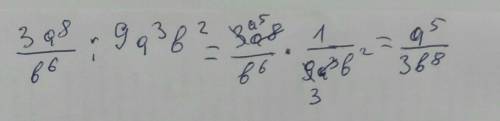 3a⁸/b⁶ : 9a³b² = 3a⁸ a⁵/b⁶ · 1/9a³b² 3 = a⁵/3b⁸